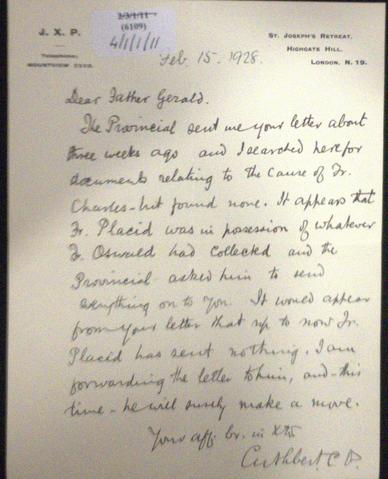 J. X. P.
Telephone:
MOUNTVIEW
2/3/1/11
(6109)
4/1/1/11
ST. JOSEPH'S RETREAT,
HIGHGATE HILL,
LONDON, N. 19.
Feb. 15. 1928.
Dear Father Gerald.
The Provincial sent me your letter about
three weeks ago and I searched here for
documents relating to the Cause of Fr.
Charles - but found none. It appears that
Fr. Placid was in posession of whatever
Fr. Oswald had collected and the
Provincial asked him to send
everything on to you. It would appear
from your letter that up to now Fr.
Placid has sent nothing. I am
forwarding the letter to him, and - this
time - he will surely make a move.
Your aff. br. in
Cuthbert. C. P.